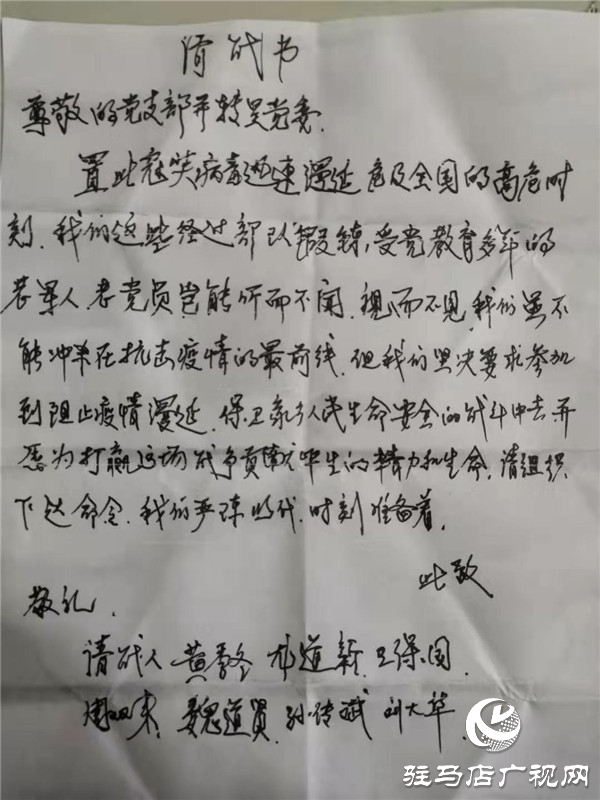 请战书
尊敬的党支部并转吴党委.
置此冠状病毒迅速漫延危及全国的高危时
刻.我们这些经过部队锻炼,受党教育多年的
老军人.老党员岂能听而不闻.视而不见,我们虽不
能冲杀在抗击疫情的最前线.但我们坚决要求参加
到阻止疫情漫延.保卫家乡人民生命安全的战斗中去并
愿为打赢这场战争贡献毕生的精力和生命.请组织
下达命令.我们严阵以待.时刻准备着.
此致
敬礼.
请战人 黄 道新.卫保国.
周 来.魏道 .孙传斌 刘大华
驻马店广视网